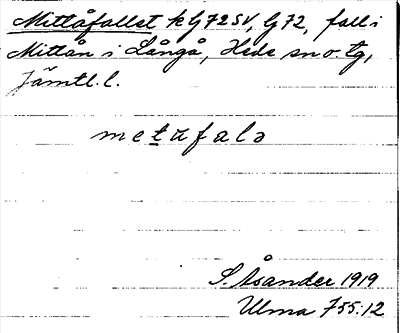 Mittåfallet k G72SV, G72, fall i
Mittån i Långå, Hede sn o. tg,
Jämtl. l.
metåfalə
S. Åsander 1919
Ulma 755:12